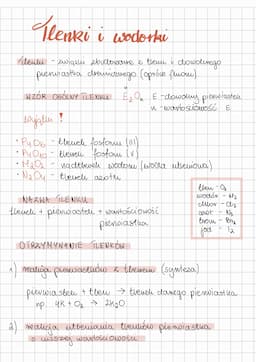 Tlenki i wodorki
Tlenki - związki zbudowane z tlenu i dowolnego
pierwiastka chemicznego (oprócz fluoru)
WZÓR OGÓLNY TLENKU: E₂Oₙ E - dowolny pierwiastek
n - wartościowość E
Wyjątki !
• P₄O₆ - tlenek fosforu (III)
• P₄O₁₀ - tlenek fosforu (V)
• H₂O₂ - nadtlenek wodoru (woda utleniona)
• N₂O₄ - tlenek azotu
NAZWA TLENKU
tlenek + pierwiastek + wartościowość
pierwiastka
tlen - O₂
wodór - H₂
chlor - Cl₂
azot - N₂
brom - Br₂
jod - I₂
OTRZYMYWANIE TLENKÓW
1) reakcja pierwiastków z tlenem (synteza)
pierwiastek + tlen → tlenek danego pierwiastka
np. 4K + O₂ → 2K₂O
2) reakcja utleniania tlenków pierwiastka
o niższej wartościowości